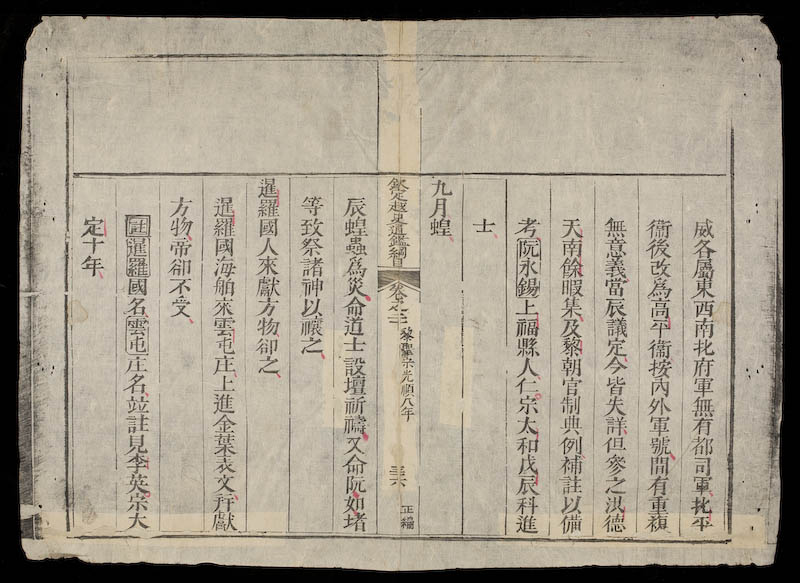 威各屬東西南北府軍無有都司軍北平
衞後改為高平衞按內外軍號間有重複
無意義當辰議定今皆失詳但參之洪德
天南餘暇集及黎朝官制典例補註以備
考阮永錫上福縣人仁宗太和戊辰科進
士
九月蝗
欽定越史通鑑綱目 卷之二十 黎聖宗光順八年 三十六 正編
辰蝗蟲為災命道士設壇祈禱又命阮如堵
等致祭諸神以禳之
暹羅國人來獻方物卻之
暹羅國海舶來雲屯庄上進金葉表文并獻
方物帝卻不受
註暹羅國名雲屯庄名並註見李英宗大
定十年